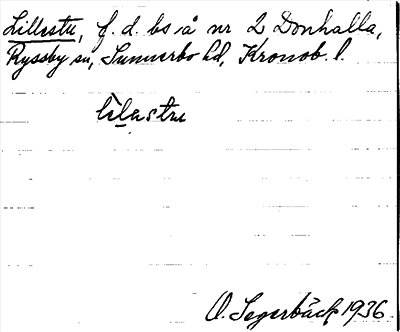 Lillestu, f. d. bs å nr 2 Donhalla,
Ryssby sn, Sunnerbo hd, Kronob. l.
lìlastu
O. Segerbäck 1936.